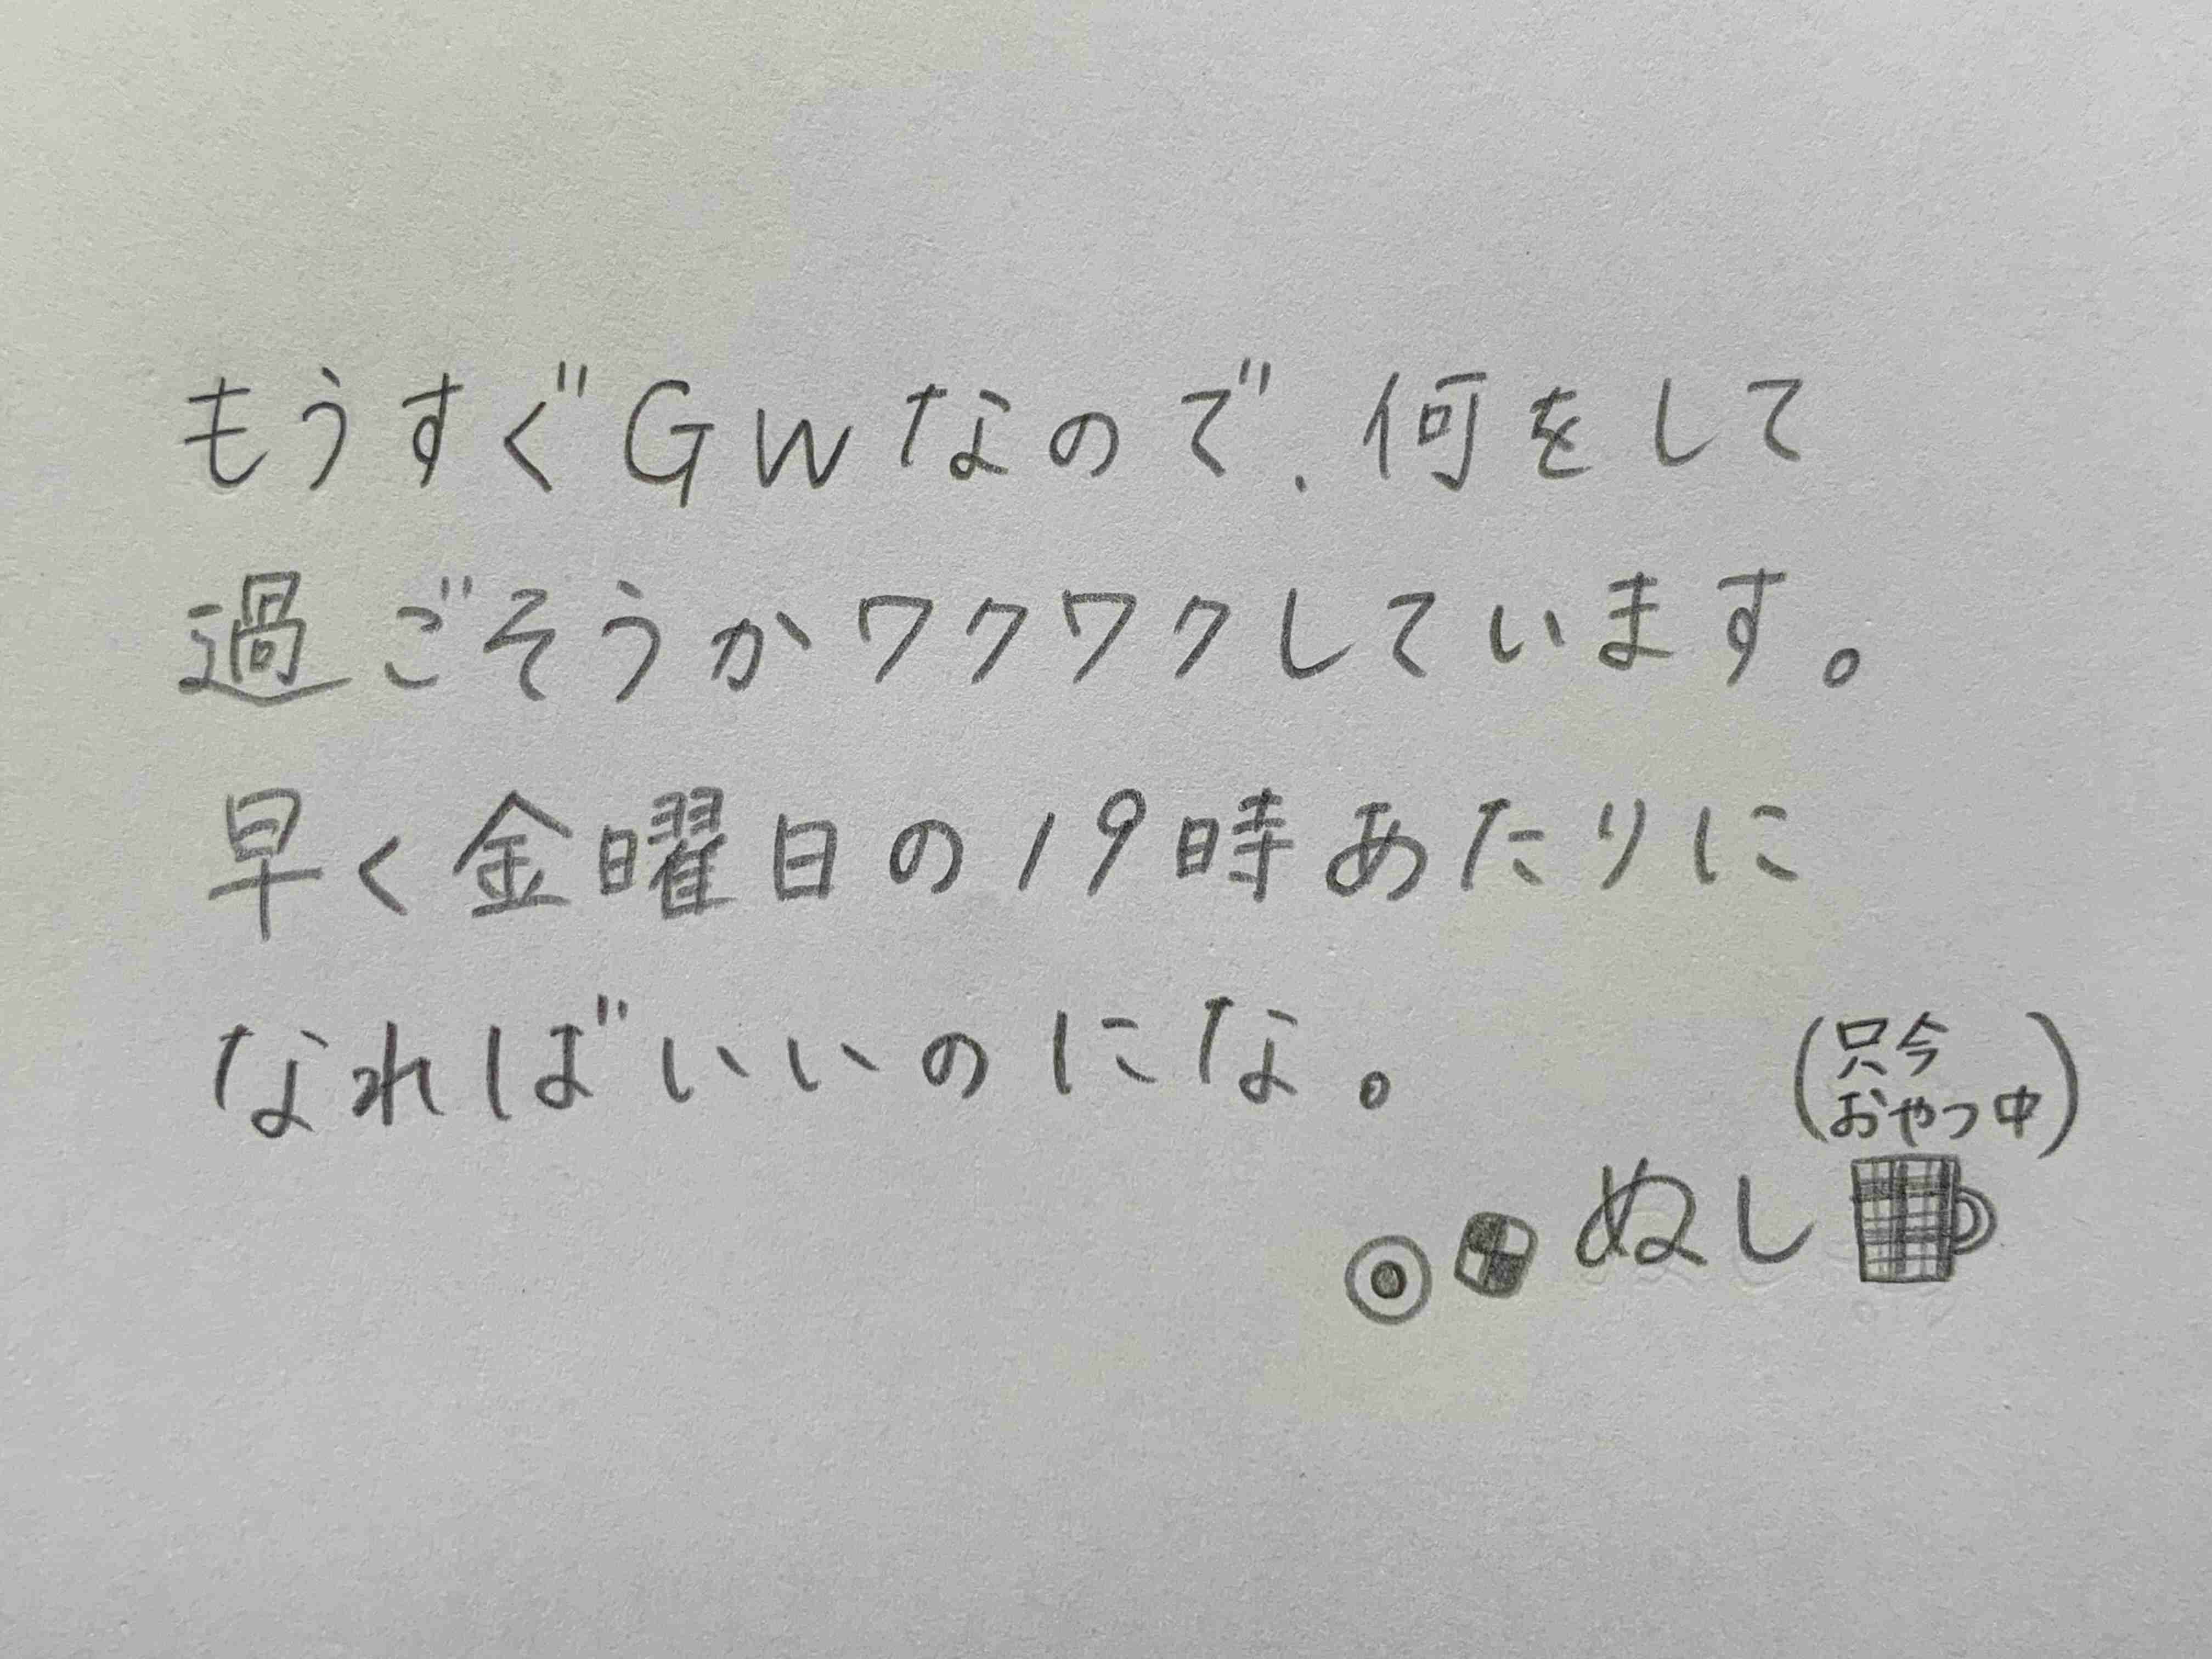 もうすぐGWなので、何をして
過ごそうかワクワクしています。
早く金曜日の19時あたりに
なればいいのにな。
(只今
おやつ中)
ぬし